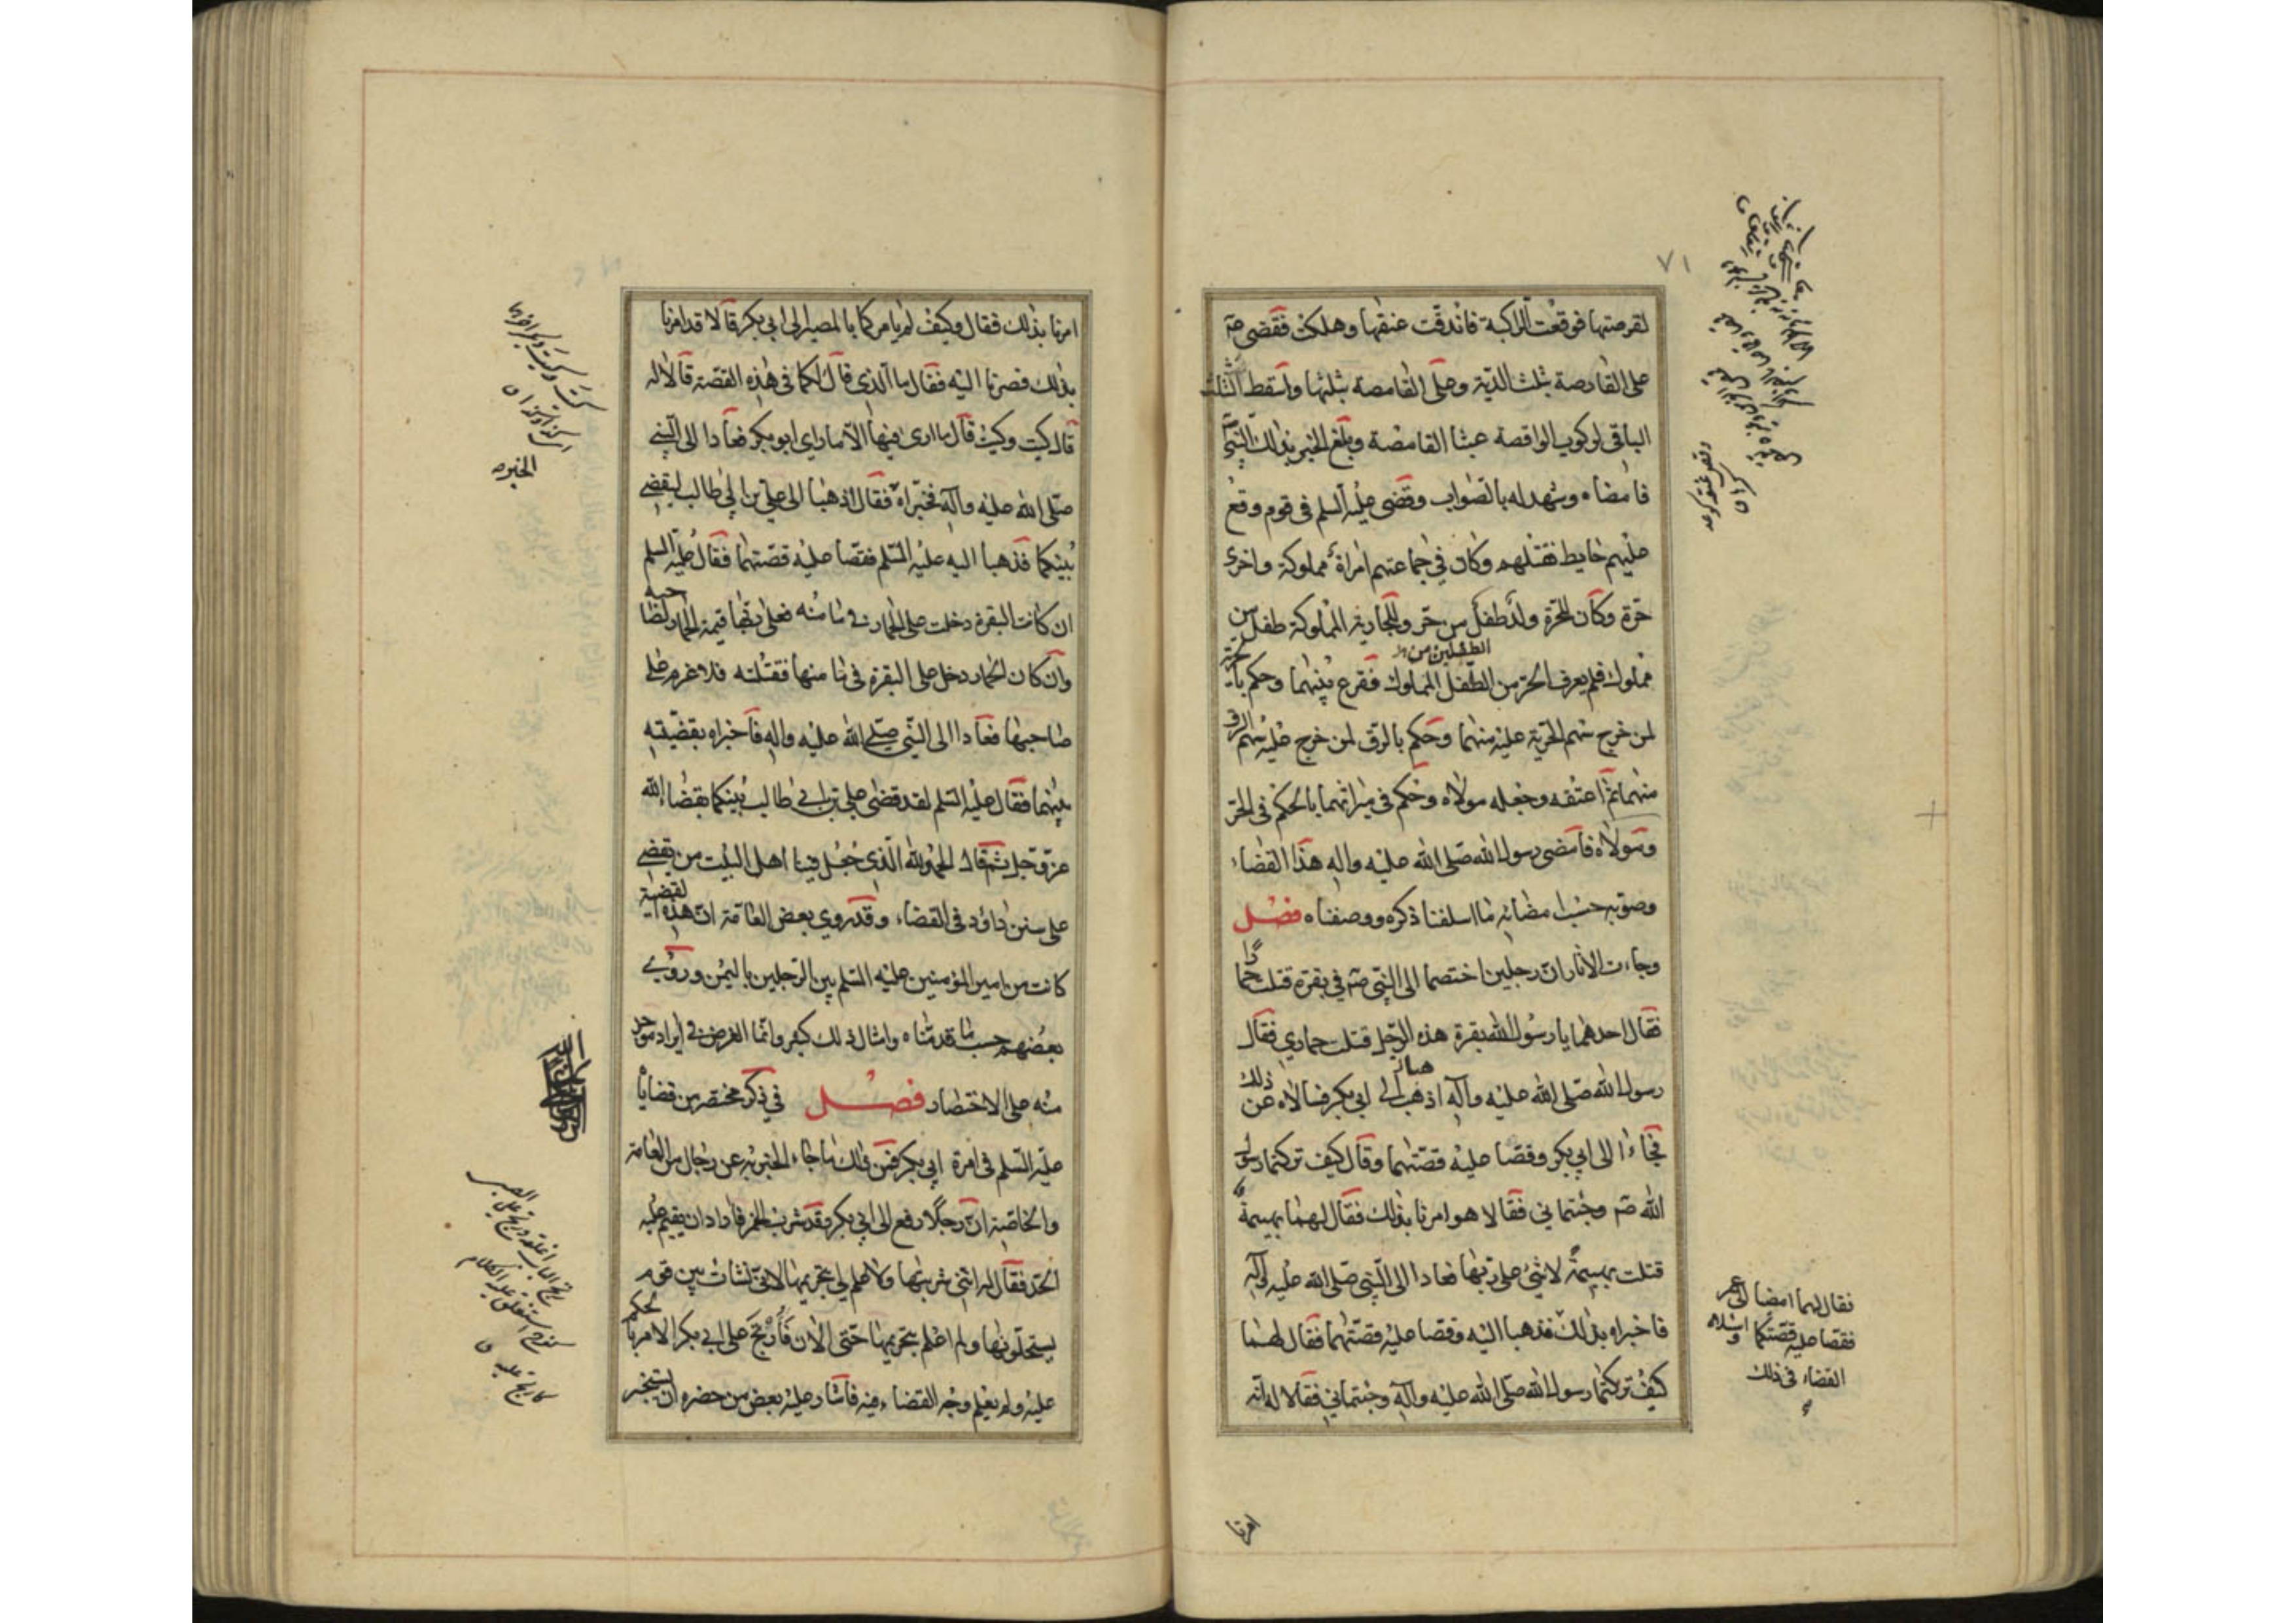 ٧١
لقرصتها فوقعت الراكبة فاندقت عنقها وهلكت فقضى ص
على القارصة بثلث الدية وعلى القامصة بثلثها واسقط الثلث
الباقي لركوب الواقصة عبثا القامصة وبلغ الخبر بذلك النبي
فامضاه وشهد له بالصواب وقضى عليه السلم في قوم وقع
عليهم حايط فقتلهم وكان في جماعتهم امراة مملوكة واخرى
حرة وكان للحرة ولد طفل من حر وللجارية المملوكة طفل من
مملوك فلم يعرف الحر من الطفلين من الطفل المملوك فقرع بينهما وحكم بالحرية
لمن خرج سهم الحرية عليه منهما وحكم بالرق لمن خرج عليه سهم الرق
منهما ثم اعتقه وجعله مولاه وحكم في ميراثهما بالحكم في الحر
ومولاه فامضى رسول الله صلى الله عليه واله هذا القضاء
وصوبه حسب امضائه ما اسلفنا ذكره ووصفناه فصل
وجاءت الاثار ان رجلين اختصما الى النبي ص في بقرة قتلت حمارا
فقال احدهما يا رسول الله بقرة هذه الرجل قتلت حماري فقال
رسول الله صلى الله عليه وآله اذهبا الى ابي بكر فسالاه عن ذلك
فجاءا الى ابي بكر وقصا عليه قصتهما وقال كيف تركتما رسول
الله ص وجئتماني فقالا هو امرنا بذلك فقال لهما بهيمة
قتلت بهيمة لا شئ على ربها فعادا الى النبي صلى الله عليه وآله
فاخبراه بذلك
فقال لهما امضيا الى عمر
فقصا عليه قصتكما واسئلاه
القضاء في ذلك
فذهبا اليه وقصا عليه قصتهما فقال لهما
كيف تركتما رسول الله صلى الله عليه وآله وجئتماني فقالا له انه
امرنا
امرنا بذلك فقال وكيف لم يامركما بالمصير الى ابي بكر قالا قد امرنا
بذلك فصرنا اليه فقال ما الذي قال لكما في هذه القصة قالا له
قال كيت وكيت قال ما ارى فيها الا ما راي ابو بكر فعادا الى النبي
صلى الله عليه وآله فخبراه فقال اذهبا الى علي بن ابي طالب ليقضي
بينكما فذهبا اليه عليه السلم فقصا عليه قصتهما فقال عليه السلم
ان كانت البقرة دخلت على الحمار في مامنه فعلى ربها قيمة الحمار لصاحبه
وان كان الحمار دخل على البقرة في مامنها فقتلته فلا غرم على
صاحبها فعادا الى النبي صلى الله عليه واله فاخبراه بقضيته
بينهما فقال عليه السلم لقد قضى علي بن ابي طالب بينكما بقضاء الله
عز وجل ثم قال الحمد لله الذي جعل فينا اهل البيت من يقضي
على سنن داؤد في القضاء وقد روي بعض العامة ان هذه القضية
كانت من امير المؤمنين عليه السلم بين الرجلين باليمن وروي
بعضهم حسب ما قدمناه وامثال ذلك كثير وانما الغرض في ايراد موجز
منه على الاختصار فصل في ذكر مختصر من قضاياه
عليه السلم في امرة ابي بكر فمن ذلك ما جاء الخبر به عن رجال من العامة
والخاصة ان رجلا رفع الى ابي بكر وقد شرب الخمر فاراد ان يقيم عليه
الحد فقال له انني شربتها ولا علم لي بتحريمها لاني نشات بين قوم
يستحلونها ولم اعلم بتحريمها حتى الان فارتج على ابي بكر الامر بالحكم
عليه ولم يعلم وجه القضاء فيه فاشار عليه بعض من حضره ان يستخبر